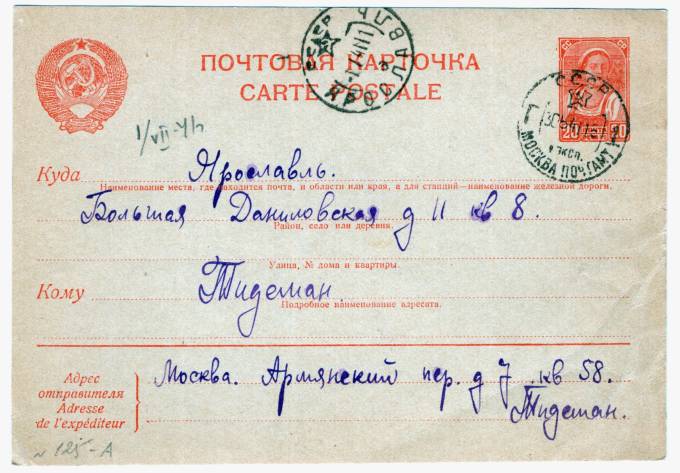 ПОЧТОВАЯ КАРТОЧКА
CARTE POSTALE
СССР
ЯРОСЛАВЛЬ
СС СР
20 20
СССР
МОСКВА ПОЧТАМТ
Куда Ярославль.
Наименование места, где находится почта, и области или края, а для станций—наименование железной дороги.
Большая Даниловская д 11 кв 8.
Район, село или деревня.
Улица, № дома и квартиры.
Кому Тидеман.
Подробное наименование адресата.
Адрес отправителя
Adresse de l'expéditeur
Москва. Армянский пер. д 7 кв 58.
Тидеман.
№ 125-А